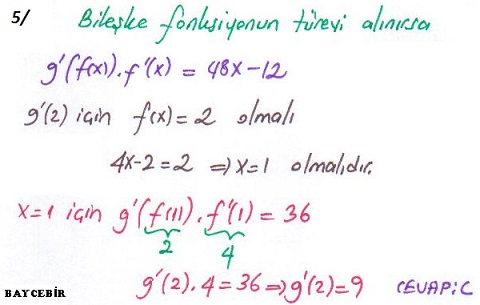 5/ Bileşke fonksiyonun türevi alınırsa
g'(f(x)).f'(x) = 48x-12
g'(2) için f(x) = 2 olmalı
4x-2=2 ⇒ x=1 olmalıdır.
x=1 için g'(f(1)).f'(1) = 36
2 4
g'(2).4=36 ⇒ g'(2)=9 CEVAP:C
BAYCEBİR